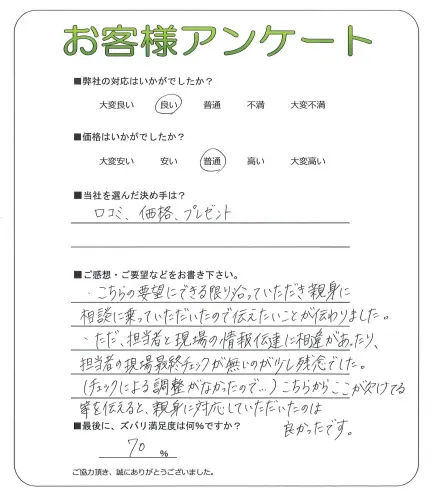 お客様アンケート
■弊社の対応はいかがでしたか?
大変良い 良い 普通 不満 大変不満
■価格はいかがでしたか?
大変安い 安い 普通 高い 大変高い
■当社を選んだ決め手は?
口コミ、価格、プレゼント
■ご感想・ご要望などをお書き下さい。
・こちらの要望にできる限り沿っていただき親身に
相談に乗っていただいたので伝えたいことが伝わりました。
・ただ、担当者と現場の情報伝達に相違があったり、
担当者の現場最終チェックが無いのが少し残念でした。
(チェックによる調整がなかったので…)こちらからここが欠けてる
等を伝えると、親身に対応していただいたのは
良かったです。
■最後に、ズバリ満足度は何%ですか?
70 %
ご協力頂き、誠にありがとうございました。